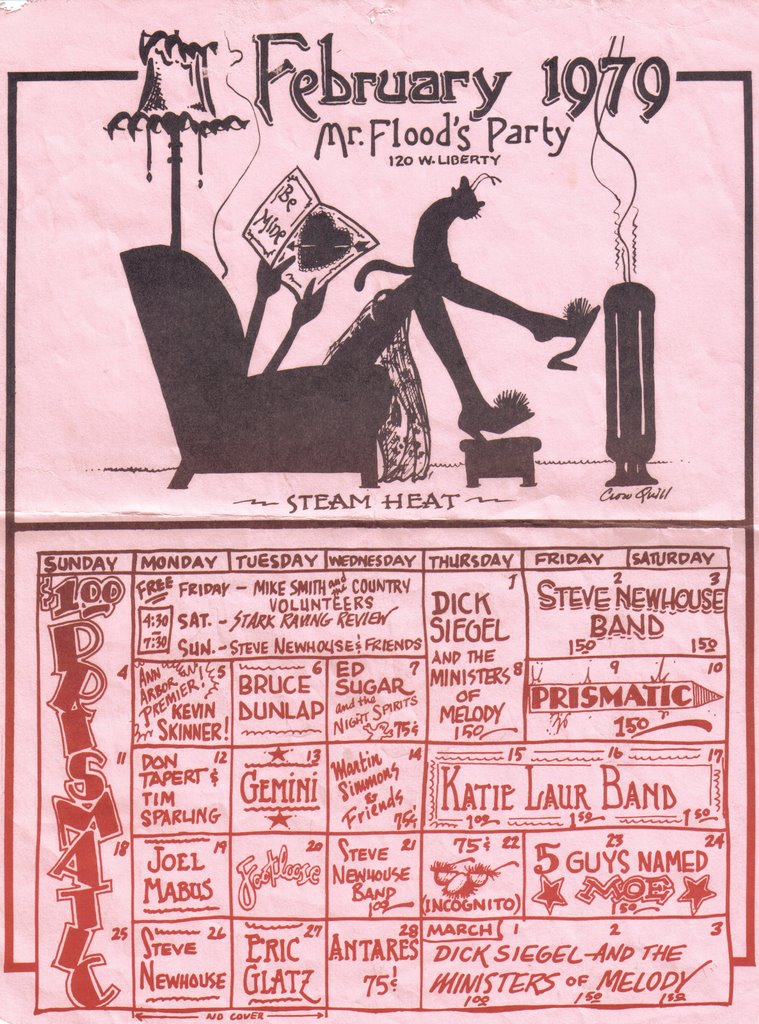 February 1979
Mr. Flood's Party
120 W. LIBERTY
Be
Mine
STEAM HEAT
Crow Quill
SUNDAY MONDAY TUESDAY WEDNESDAY THURSDAY FRIDAY SATURDAY
$1.00
PRISMATIC
4
11
18
25
FREE
4:30
7:30
FRIDAY - MIKE SMITH and the COUNTRY
VOLUNTEERS
SAT. - STARK RAVING REVIEW
SUN. - STEVE NEWHOUSE & FRIENDS
1
8
DICK
SIEGEL
AND THE
MINISTERS
OF
MELODY
1.50
2 3
STEVE NEWHOUSE
BAND
1.50 1.50
5
ANN
ARBOR
PREMIER!
KEVIN
SKINNER!
6
BRUCE
DUNLAP
7
ED
SUGAR
and the
NIGHT SPIRITS
75¢
9 10
PRISMATIC
1.50
12
DON
TAPERT &
TIM
SPARLING
13
GEMINI
14
Martin
Simmons
&
Friends
75¢
15 16 17
KATIE LAUR BAND
1.00 1.50 1.50
19
JOEL
MABUS
20
Footloose
21
STEVE
NEWHOUSE
BAND
1.00
75¢ 22
(INCOGNITO)
23 24
5 GUYS NAMED
MOE
1.50
26
STEVE
NEWHOUSE
27
ERIC
GLATZ
28
ANTARES
75¢
MARCH 1 2 3
DICK SIEGEL-AND THE
MINISTERS OF MELODY
1.00 1.50 1.50
NO COVER